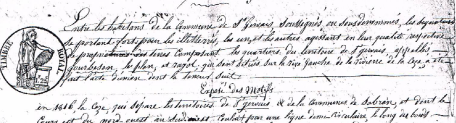 TIMBRE ROYAL
Entre les habitans de la Commune de St Gervais, soussignés ou sousdénommés, les signataires
se portant fort pour les illettérés, les uns et les autres agissant en leur qualité respective
de propriétaires des terres Composant les quartiers du territoire de St gervais, appellés
le plan, et rayol, qui sont situés sur la rive gauche de la rivière de la Ceze, a été
fait l'acte d'union dont la teneur suit
Exposé des Motifs
en 1816 la Ceze, qui separe les territoires de St gervais & de la Commune de Sabran, et dont le
Cours est du nord ouest au Coulait par une ligne demi Circulaire le long de